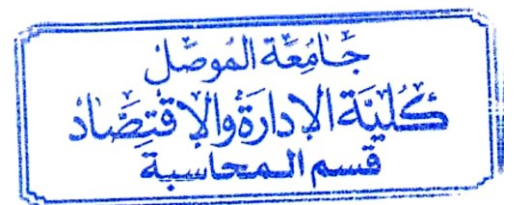 جَامِعَة المُوصَل
كُليَّة الإدارَةُ والإقتِصَاد
قسم المحاسبة